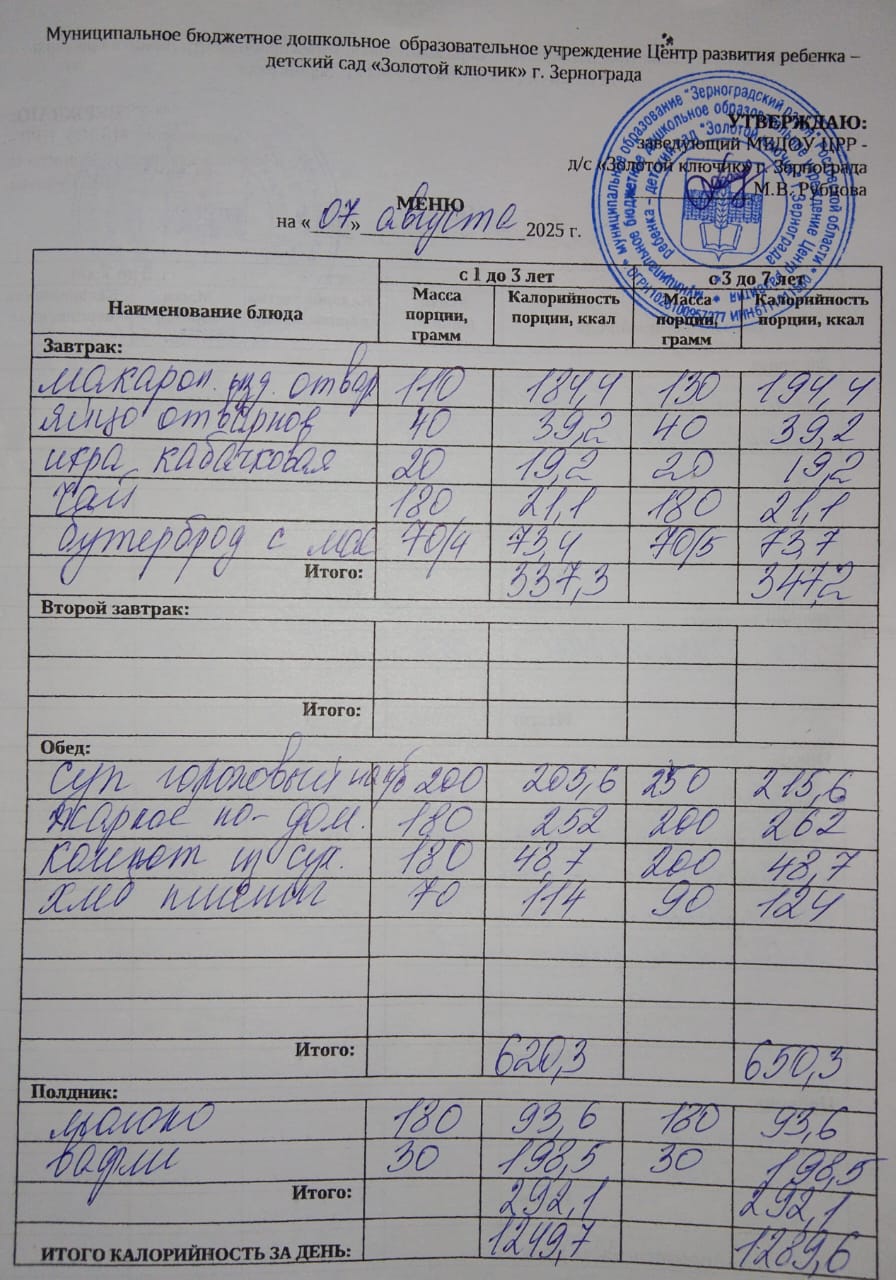 Муниципальное бюджетное дошкольное образовательное учреждение Центр развития ребенка –
детский сад «Золотой ключик» г. Зернограда
УТВЕРЖДАЮ:
заведующий МБДОУ ЦРР -
д/с «Золотой ключик» г. Зернограда
М.В. Рубцова
МЕНЮ
на « 07 » августа 2025 г.
Наименование блюда с 1 до 3 лет с 3 до 7 лет
Масса порции, грамм Калорийность порции, ккал Масса порции, грамм Калорийность порции, ккал
Завтрак:
макарон. изд. отвар 110 184,4 130 194,4
яйцо отварное 40 39,2 40 39,2
икра кабачковая 20 19,2 20 19,2
чай 180 21,1 180 21,1
бутерброд с мас 70/4 73,4 70/5 73,7
Итого: 337,3 347,2
Второй завтрак:
Итого:
Обед:
суп гороховый на к/б 200 205,6 250 215,6
жаркое по-дом. 180 252 200 262
компот из сух. 180 48,7 200 48,7
хлеб пшенич 70 114 90 124
Итого: 620,3 650,3
Полдник:
молоко 180 93,6 180 93,6
вафли 30 198,5 30 198,5
Итого: 292,1 292,1
ИТОГО КАЛОРИЙНОСТЬ ЗА ДЕНЬ: 1249,7 1289,6